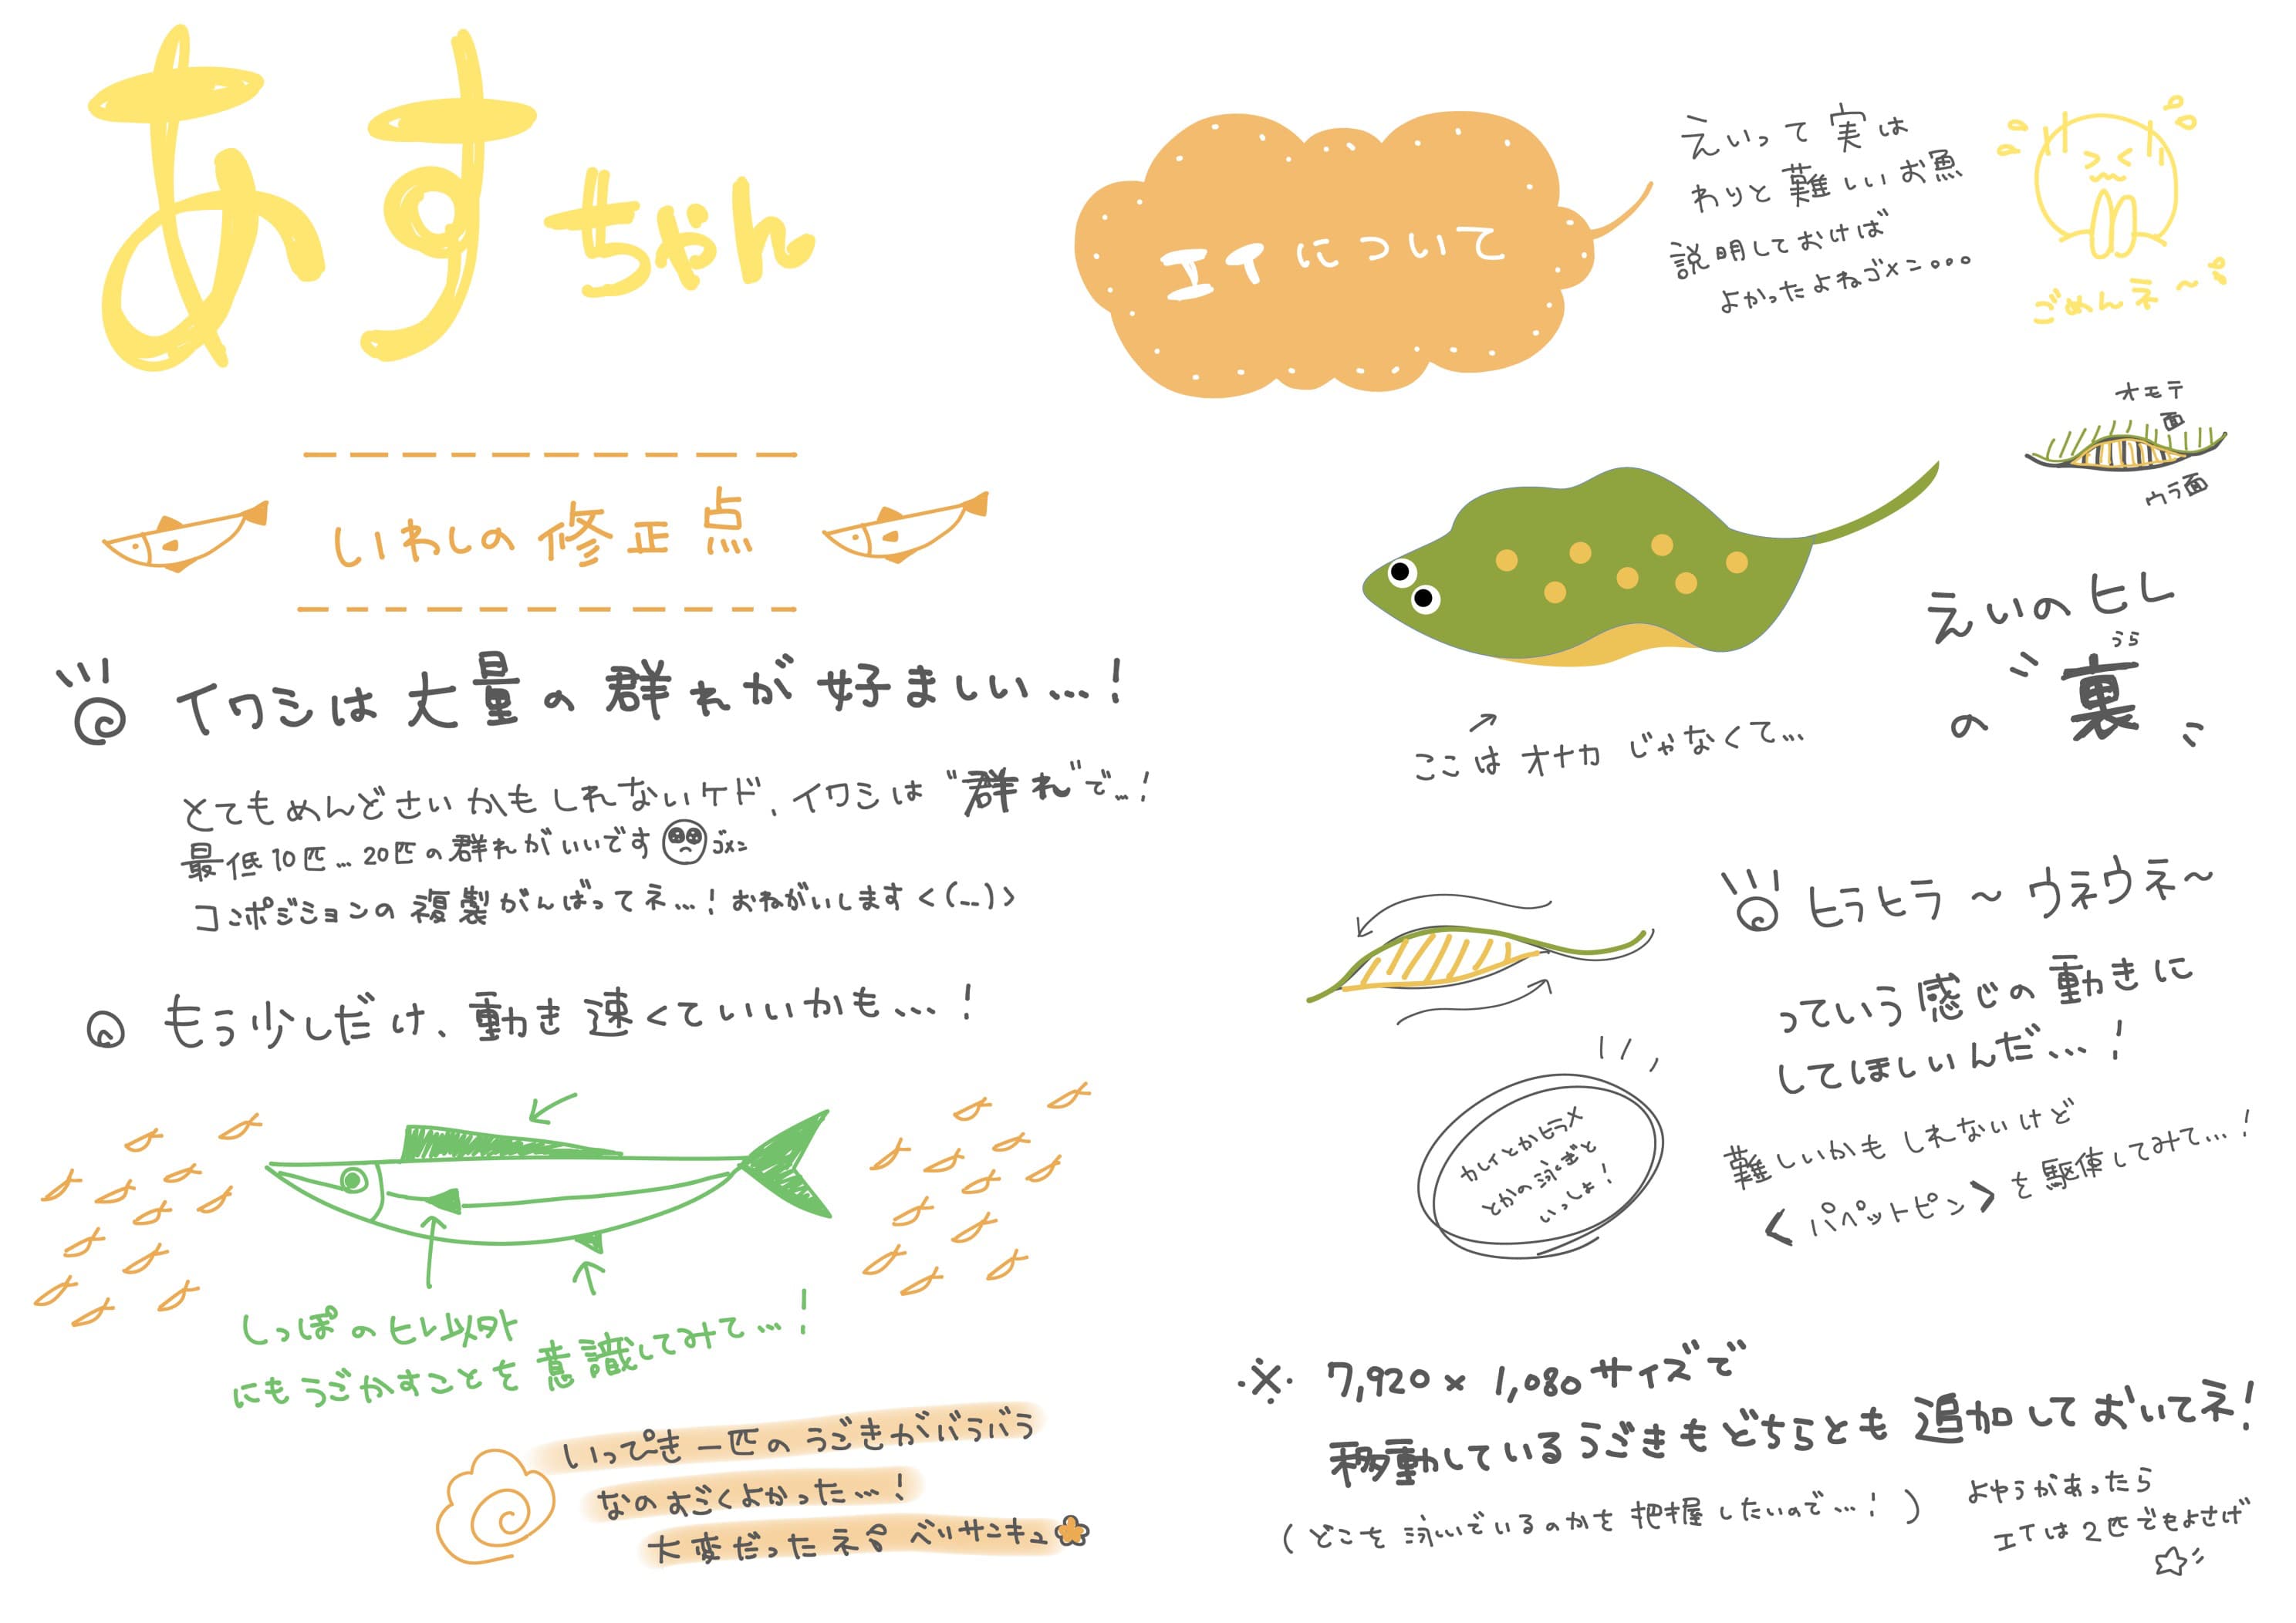 あすちゃん
いわしの修正点
イワシは大量の群れが好ましい…!
とてもめんどさいかもしれないケド、イワシは"群れ"で…!
最低10匹…20匹の群れがいいです ゴメン
コンポジションの複製がんばってネ…!おねがいします<(__)>
もう少しだけ、動き速くていいかも…!
しっぽのヒレ以外
にもうごかすことを意識してみて…!
いっぴき一匹のうごきがバラバラ
なのすごくよかった…!
大変だったネ ベリサンキュ
エイについて
えいって実は
わりと難しいお魚
説明しておけば
よかったよねゴメン。。。
ごめんネ〜
オモテ
面
ウラ面
えいのヒレ
の"裏"
うら
ここはオナカじゃなくて…
ヒラヒラ〜ウネウネ〜
っていう感じの動きに
してほしいんだ…!
カレイとかヒラメ
とかの泳ぎと
いっしょ!
難しいかもしれないけど
<パペットピン>を駆使してみて…!
※ 7,920×1,080サイズで
移動しているうごきもどちらとも追加しておいてネ!
(どこを泳いでいるのかを把握したいので…!)
よゆうがあったら
エイは2匹でもよさげ